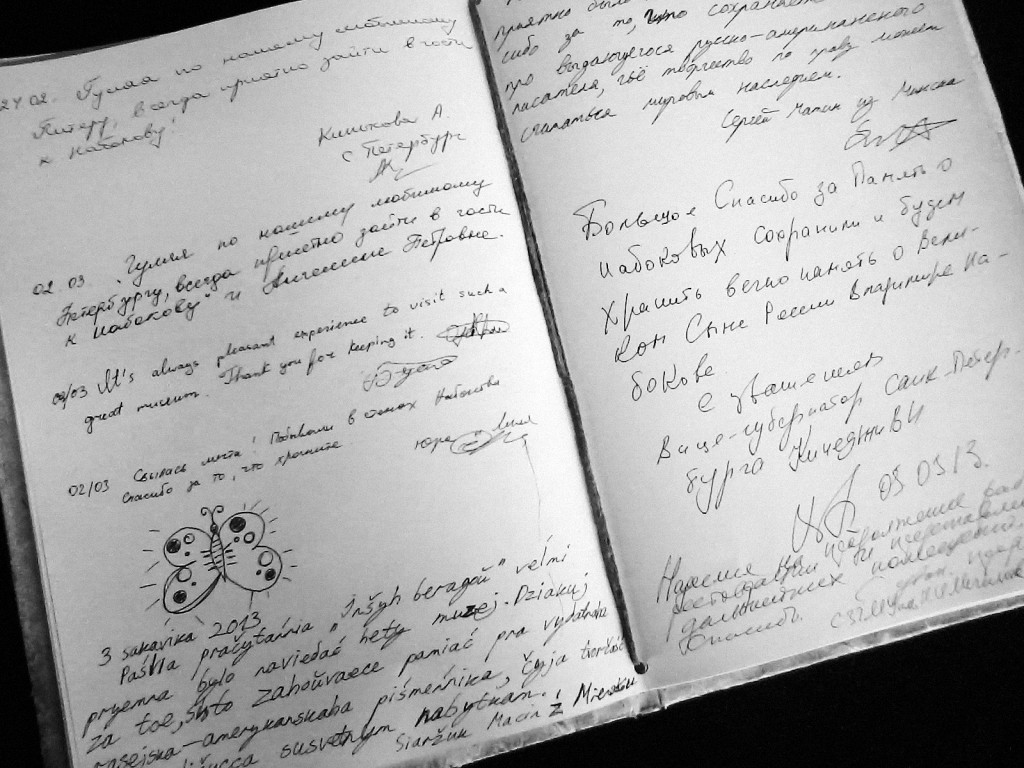 24 02. Гуляя по нашему любимому
Питеру, всегда приятно зайти в гости
к Набокову!
Кишкова А.
с Петербург
02 03 Гуляя по нашему любимому
Петербургу, всегда приятно зайти в гости
к Набокову" и Петровне.
02/03 It's always pleasant experience to visit such a
great museum. Thank you for keeping it.
02/03 Сбылась мечта! Побывали в Набокова
Спасибо за то, что храните.
3 sakavika 2013
Pasĺia pračytańnia "Inšyh beragoŭ" veĺmi
pryemna bylo naviedać hety muzej. Dziakuj
za toe, što zahoŭvaece pamiać pra vydatnaha
rasejska-amerykanskaha piśmeńnika, čyja tvorčaść
susvetnym nabytkam.
Siaržuk Macin z Miensku
приятно было
сибо за то, что сохраняете
про выдающегося русско-американского
писателя, чьё творчество по праву может
считаться мировым наследием.
Сергей Мацин из Минска
Большое Спасибо за Память о
Набоковых сохранили и будем
хранить вечно память о Вели-
ком Сыне России Владимире На-
бокове.
С уважением
Вице-губернатор Санк-Петер-
бурга Кичеджи ВИ
03 03 13.
Надеемся на продолжение
реставрации и
дальнейших помещений.
Спасибо.